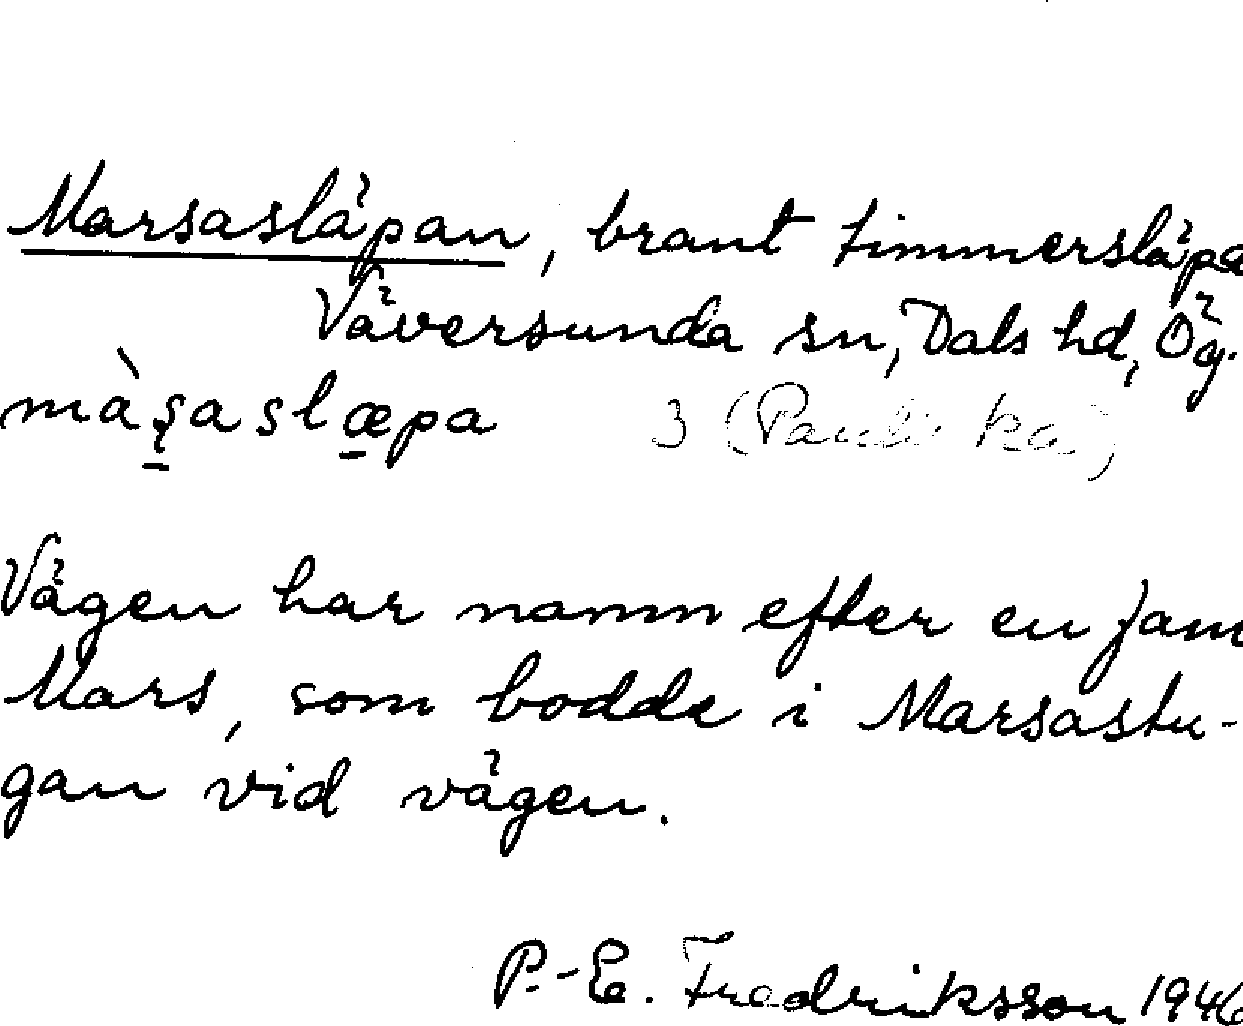 Marsasläpan, brant timmersläpa
Väversunda sn, Dals hd, Ög.
màṣaslæpa 3 (Pauli ka)
Vägen har namn efter en jam
Mars, som bodde i Marsastu-
gan vid vägen.
P.-E. Fredriksson 1946